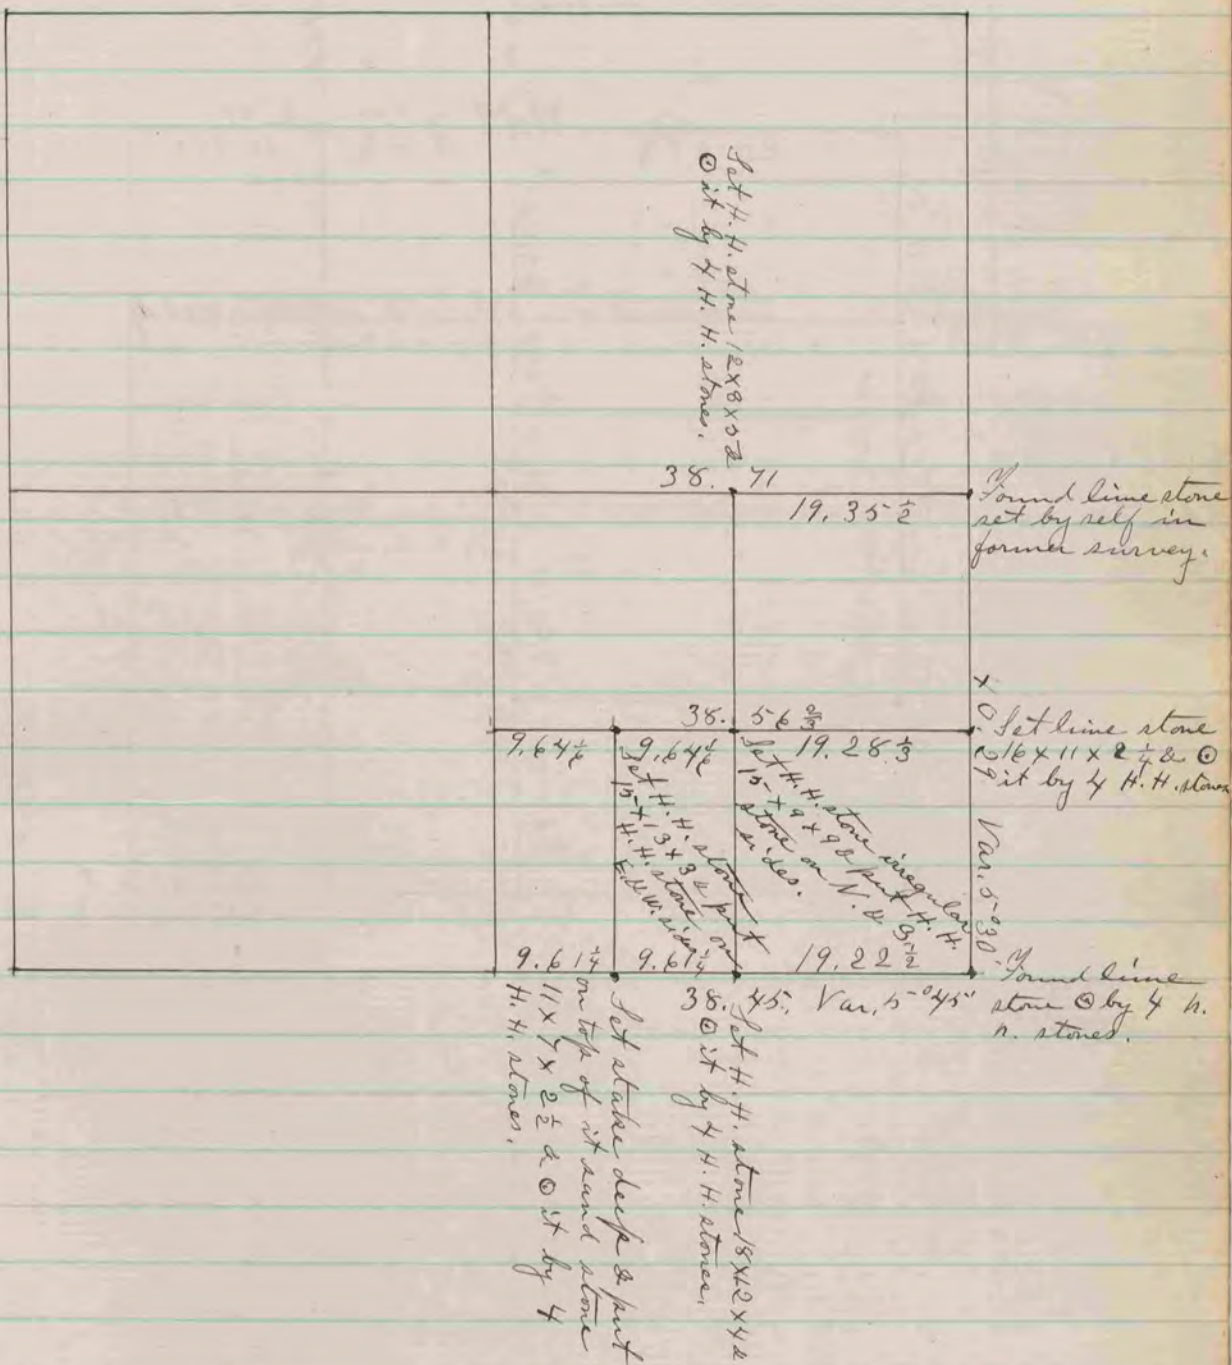 Set H.H. stone 12x8x5 &
⊙ it by 4 H.H. stones.
38. 71
19. 35 ½
Found lime stone
set by self in
former survey.
38. 56 ⅔
9. 64 ⅙
9. 64 ⅙
19. 28 ⅓
Set lime stone
16 x 11 x 2 ¼ & ⊙
it by 4 H.H. stones
Var. 5° 30'
Set H.H. stone
15 x 13 x 3 & put
H.H. stone on
E. & W. sides
Set H.H. stone irregular
15 x 9 x 9 & put H.H.
stone on N. & S.
sides.
9. 61 ¼
9. 61 ¼
19. 22 ½
38. 45. Var. 5° 45'
Found lime
stone ⊙ by 4 n.
n. stones.
Set H.H. stone 18x12x4 &
⊙ it by 4 H.H. stones.
Set stake deep & put
on top of it sand stone
11 x 7 x 2 ½ & ⊙ it by 4
H.H. stones.